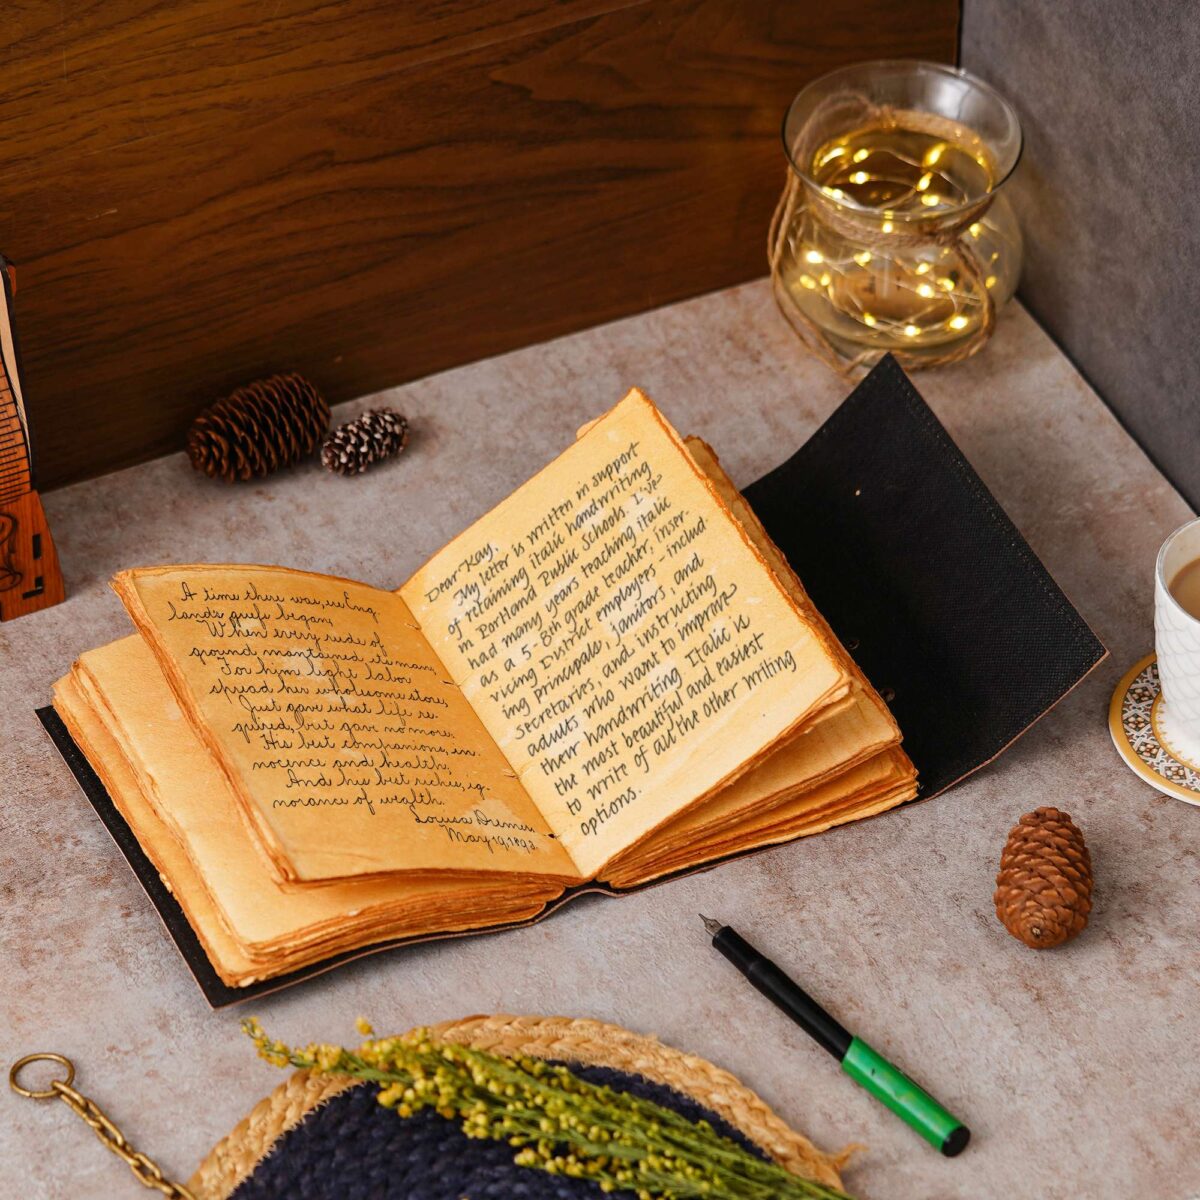 A time there was, ere Eng-
land's griefs began,
When every rude of
ground maintained its man;
For him light labor
spread her wholesome store,
Just gave what life re-
quired, but gave no more.
His best companions, in-
nocence and health;
And his best riches, ig-
norance of wealth.
May 19, 1893.
Dear Kay,
My letter is written in support
of retaining italic handwriting
in Portland Public Schools. I've
had many years teaching italic
as a 5-8th grade teacher, inser-
vicing District employees - includ-
ing principals, janitors, and
secretaries, and instructing
adults who want to improve
their handwriting. Italic is
the most beautiful and easiest
to write of all the other writing
options.